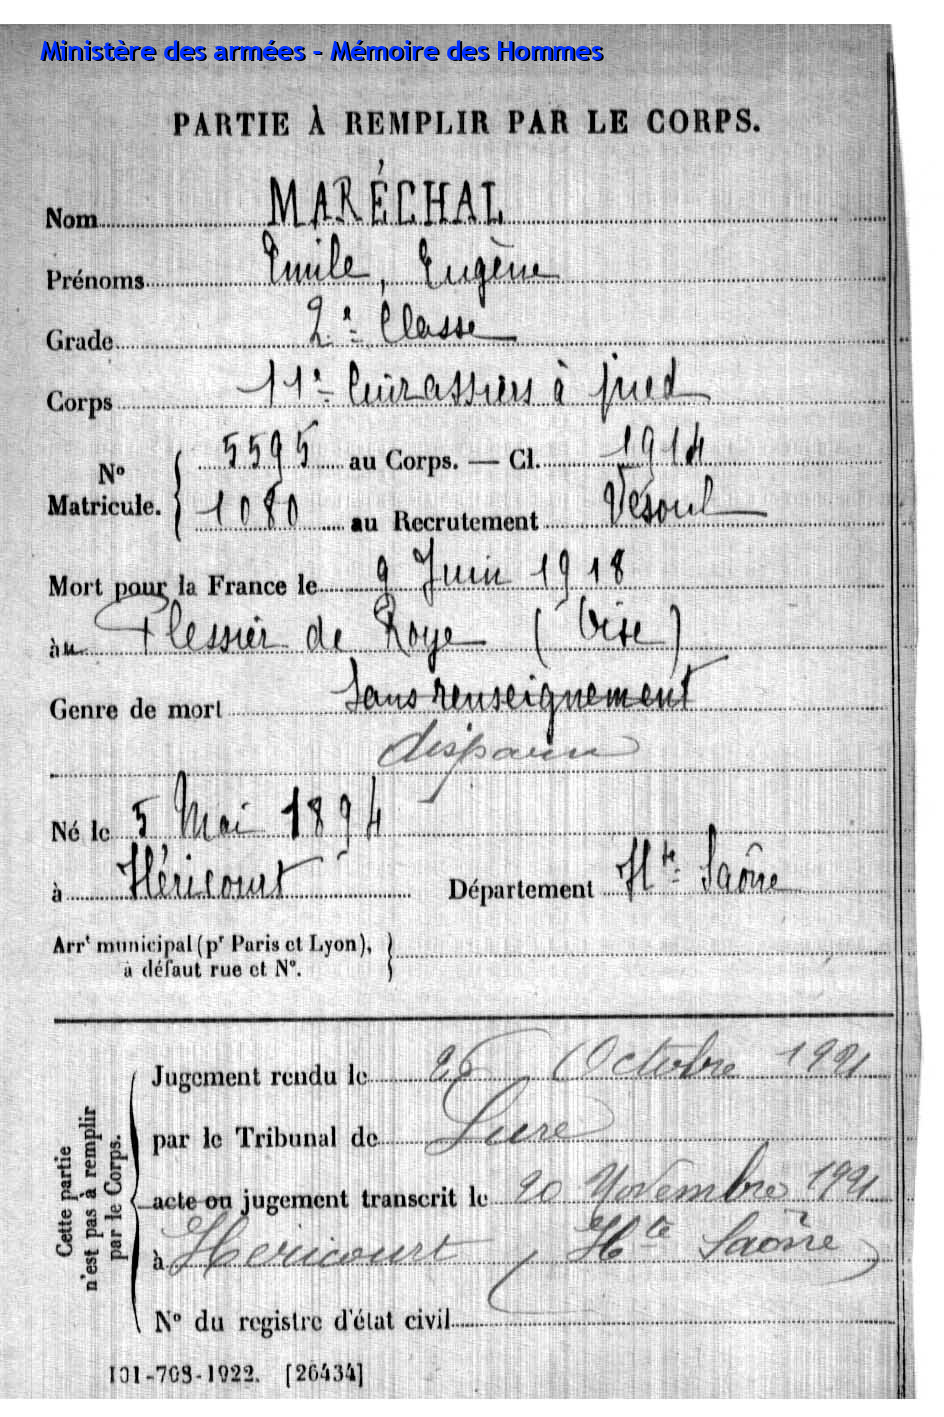 Ministère des armées - Mémoire des Hommes
PARTIE À REMPLIR PAR LE CORPS.
Nom MARÉCHAL
Prénoms Emile, Eugène
Grade 2e Classe
Corps 11e Cuirassiers à pied
No Matricule. { 5595 au Corps. — Cl. 1914
1080 au Recrutement Vesoul
Mort pour la France le 9 Juin 1918
àu Plessier de Roye (Oise)
Genre de mort Sans renseignement
disparu
Né le 5 Mai 1894
à Héricourt Département Hte Saône
Arrt municipal (pr Paris et Lyon),
à défaut rue et No.
Cette partie n'est pas à remplir par le Corps.
Jugement rendu le 26 Octobre 1921
par le Tribunal de Lure
acte ou jugement transcrit le 20 Novembre 1921
à Héricourt (Hte Saône)
No du registre d'état civil
101-708-1922. [26434]